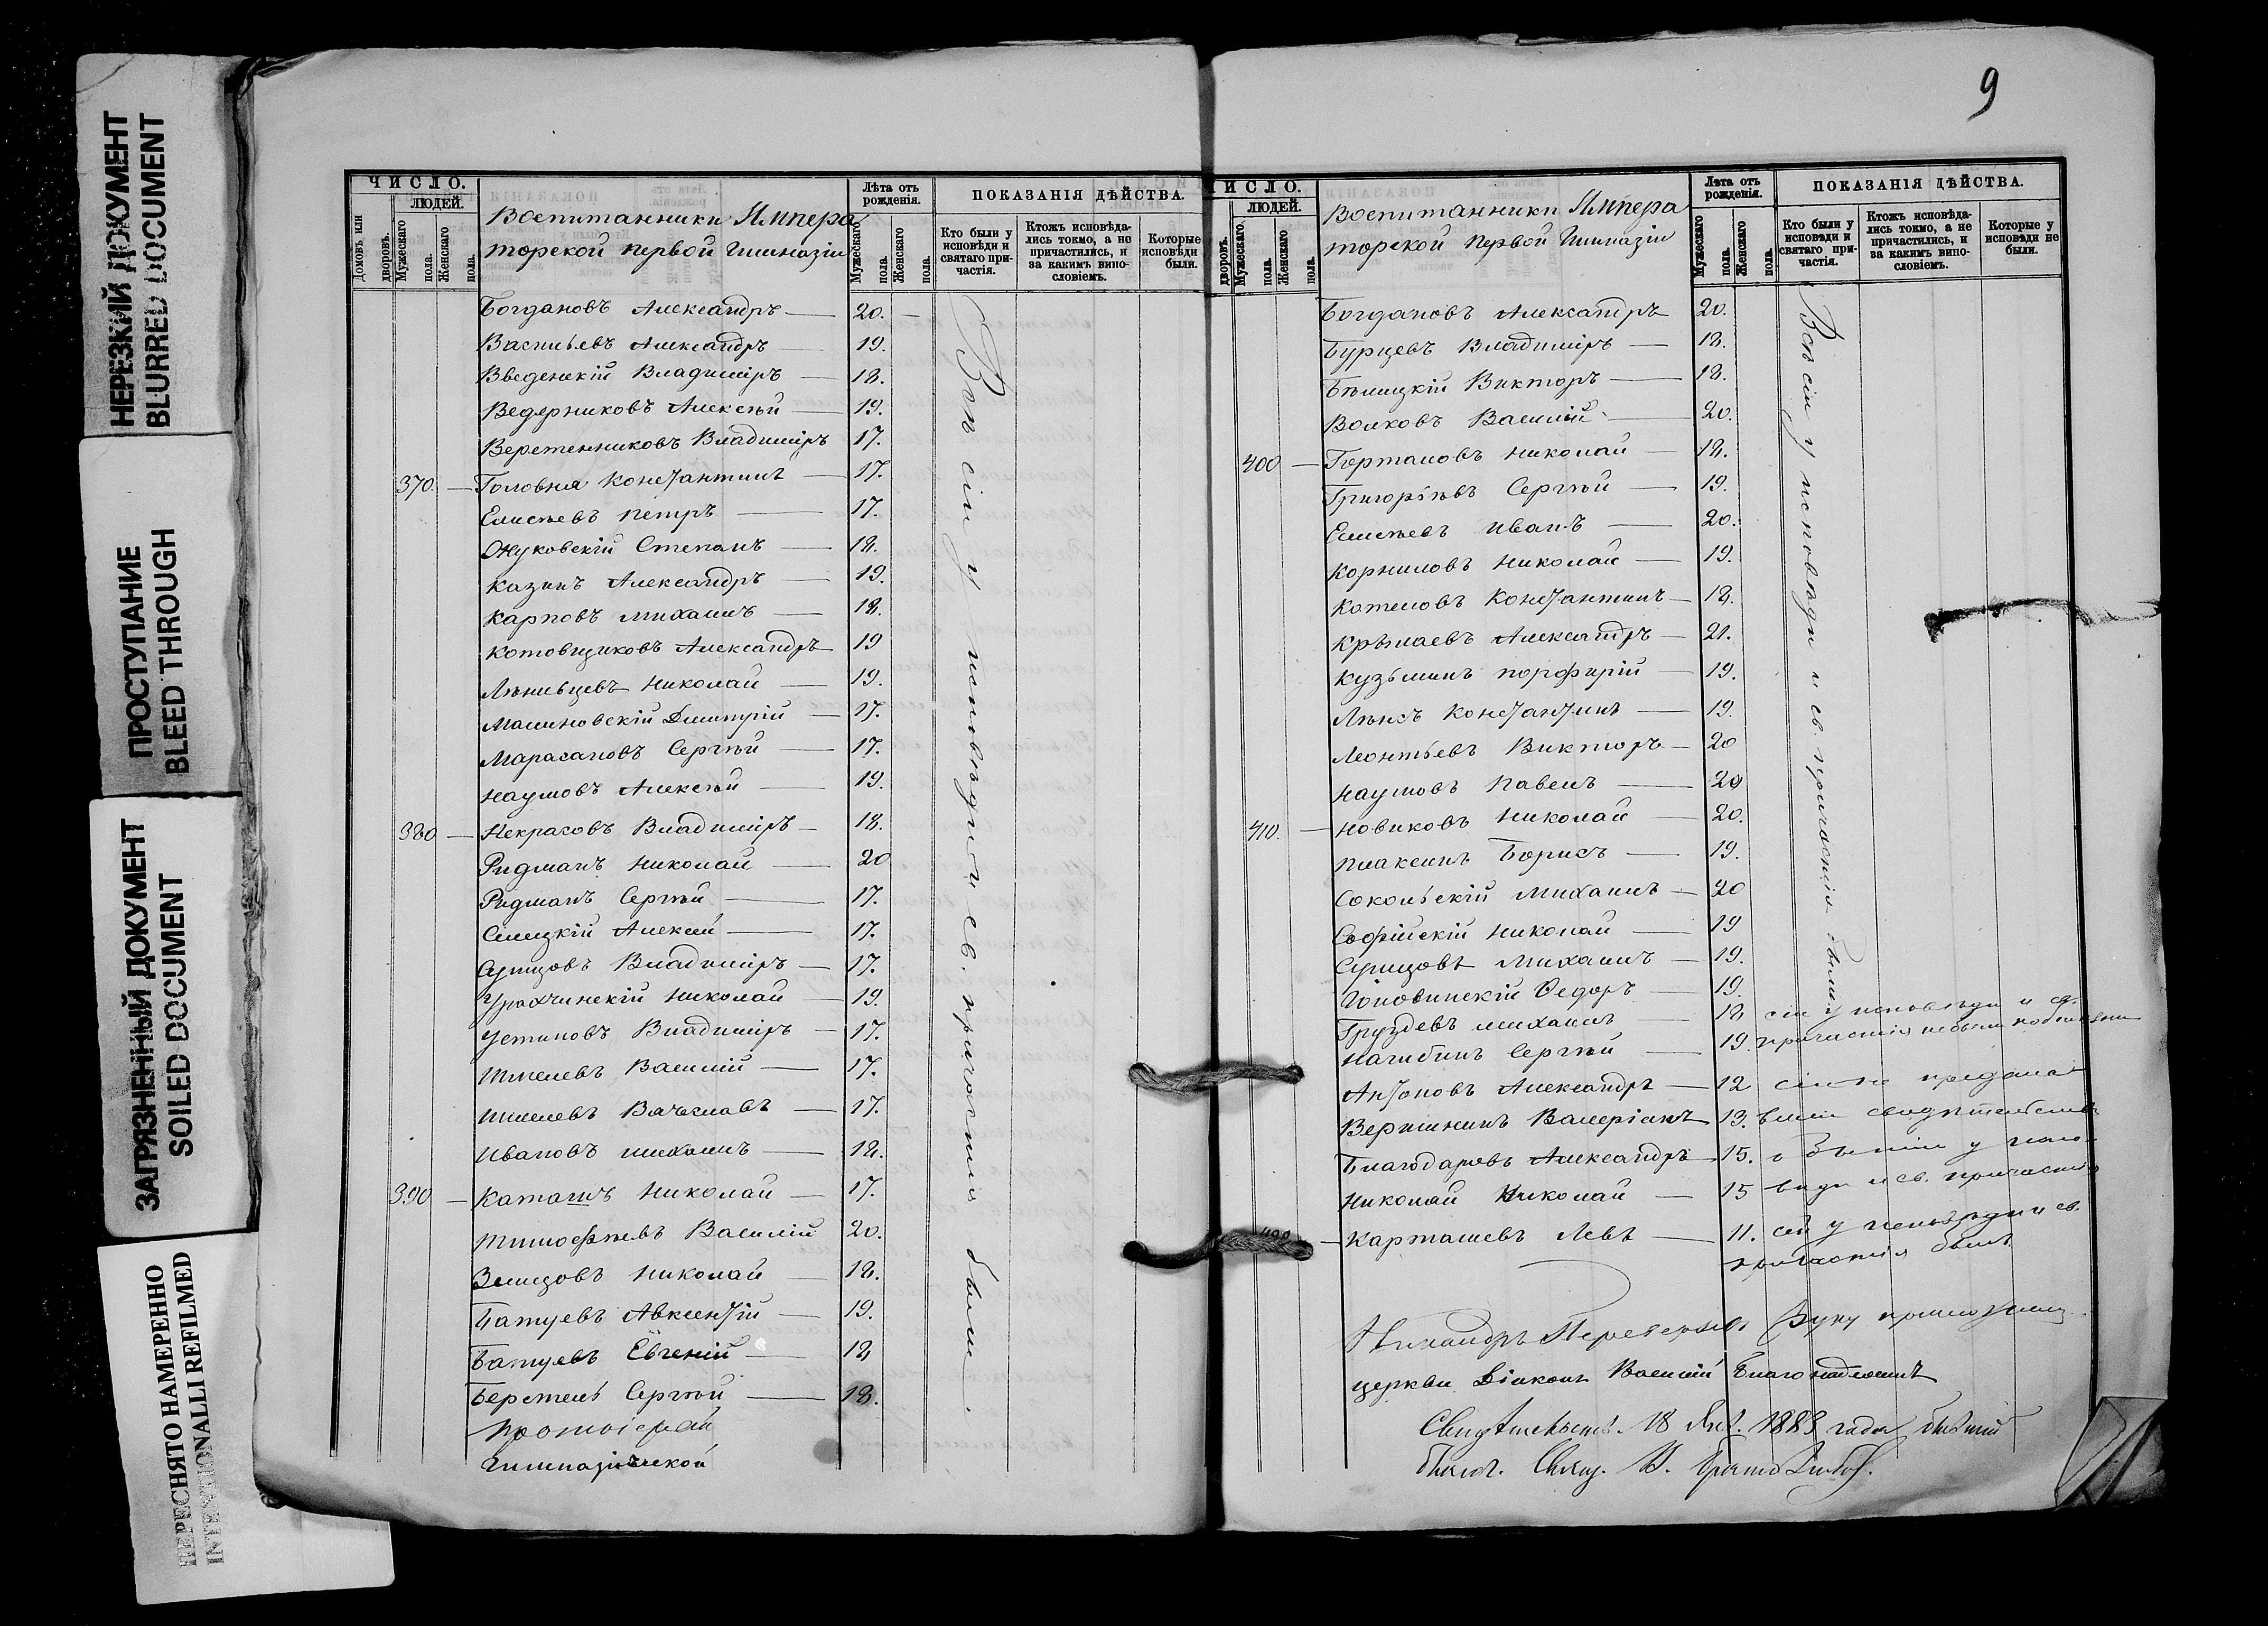 НЕРЕЗКИЙ ДОКУМЕНТ
BLURRED DOCUMENT
ПРОСТУПАНИЕ
BLEED THROUGH
ЗАГРЯЗНЕННЫЙ ДОКУМЕНТ
SOILED DOCUMENT
ПЕРЕСНЯТО НАМЕРЕННО
INTENTIONALLI REFILMED
ЧИСЛО.
ЛЮДЕЙ.
Домовъ или дворовъ.
Мужескаго пола.
Женскаго пола.
Воспитанники Импера
торской первой Гимназіи
Лѣта отъ рожденія.
Мужескаго пола.
Женскаго пола.
ПОКАЗАНІЯ ДѢЙСТВА.
Кто были у исповѣди и святаго причастія.
Ктожъ исповѣда-
лись токмо, а не
причастились, и
за какимъ вино-
словіемъ.
Которые исповѣди были.
Богдановъ Александръ — 20. —
Васильевъ Александръ — 19.
Введенскій Владиміръ — 18.
Ведерниковъ Алексѣй — 19.
Веретенниковъ Владиміръ 17.
370. — Головня Константинъ — 17.
Елисѣевъ Петръ — 17.
Жуковскій Степанъ — 18.
Казинъ Александръ — 19.
Карповъ Михаилъ — 18.
Котовщиковъ Александръ 19
Лѣнивцевъ Николай — 19.
Малиновскій Дмитрій — 17.
Марасановъ Сергѣй — 17.
Наумовъ Алексѣй — 19.
380 — Некрасовъ Владиміръ — 18.
Ридманъ Николай — 20
Ридманъ Сергѣй — 17.
Слицкій Алексѣй — 17.
Сунцовъ Владиміръ — 17.
Николай — 19.
Устиновъ Владиміръ — 17.
Шмелевъ Василій — 17.
Шмелевъ Вячеславъ — 17.
Ивановъ Михаилъ — 18.
390 — Николай — 17.
Тимофѣевъ Василій 20.
Николай — 18.
Батуевъ Авксентій — 19.
Батуевъ Евгеній — 18
Сергѣй — 18.
Протоіерей
Гимназической
Всѣ сіи у исповѣди и св. причастія были.
9
ИСЛО.
ЛЮДЕЙ.
дворовъ.
Мужескаго. пола.
Женскаго пола.
Воспитанники Импера
торской первой Гимназіи
Лѣта отъ рожденія.
Мужескаго пола.
Женскаго пола.
ПОКАЗАНІЯ ДѢЙСТВА.
Кто были у исповѣди и святаго причастія.
Ктожъ исповѣда-
лись токмо, а не
причастились, и
за какимъ вино-
словіемъ.
Которые у исповѣди не были.
Богдановъ Александръ 20.
Бурцевъ Владиміръ — 18.
Бѣлицкій Викторъ — 18.
Волковъ Василій — 20.
400 — Горталовъ Николай — 18.
Григорьевъ Сергѣй — 19.
Елисѣевъ Иванъ — 20.
Корниловъ Николай — 19.
Котеловъ Константинъ — 18.
Александръ — 21.
Кузьминъ Порфирій — 19.
Константинъ — 19.
Леонтьевъ Викторъ — 20
Наумовъ Павелъ — 20
410. — Новиковъ Николай — 20.
Плаксинъ Борисъ — 19.
Сокольскій Михаилъ — 20
Софійскій Николай — 19
Сунцовъ Михаилъ — 19.
Ѳедоръ — 19.
Груздевъ Михаилъ — 18
Нагибинъ Сергѣй — 19.
Антоновъ Александръ — 12
Вершининъ Валеріанъ 13.
Благодаровъ Александръ 15.
Николай Николай — 15
420 — Карташевъ Левъ — 11.
Всѣ сіи у исповѣди и св. причастія были.
сіи у исповѣди и св.
причастія не были по болѣзни
сіи не предста
вили свидѣтельства
о бытіи у испо
вѣди и св. причастія
сей у исповѣди и св.
причастія былъ
Никандръ руку приложилъ.
церкви Діаконъ Василій
18 1883 года
Свящ.